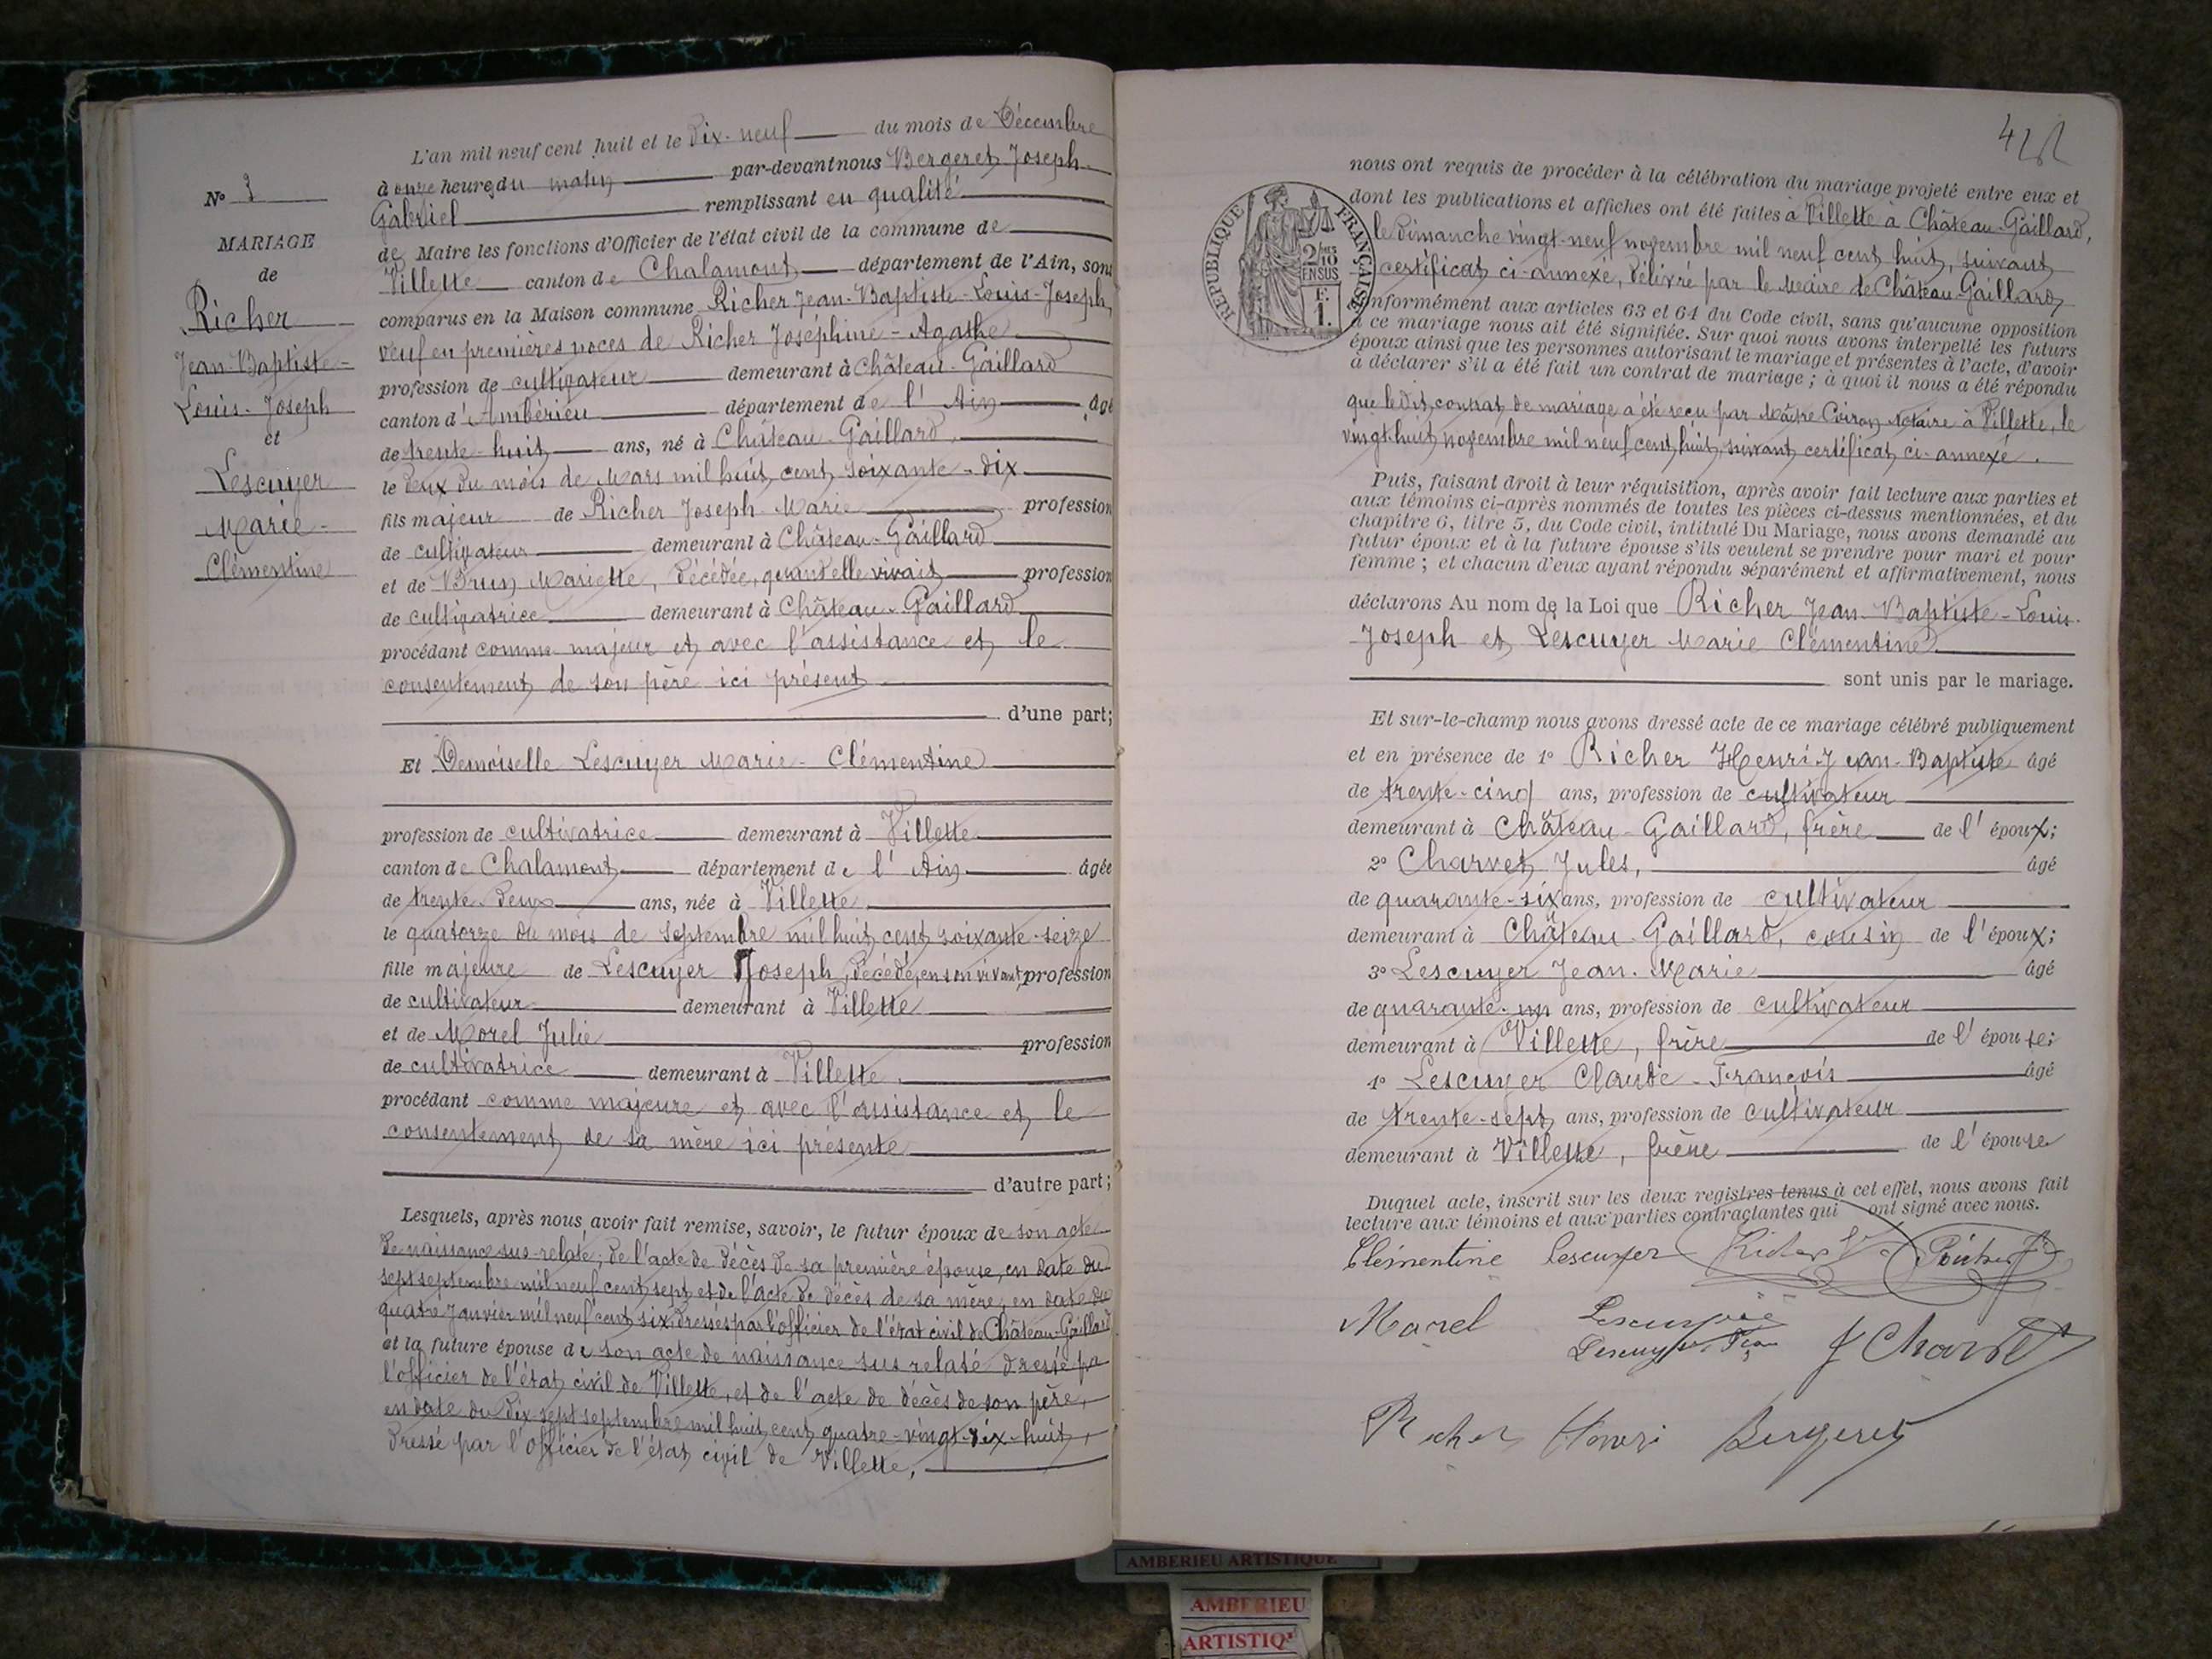 L'an mil neuf cent huit et le Dix-neuf du mois de Décembre
à onze heures du matin par-devant nous Bergeret Joseph
Gabriel remplissant en qualité
de Maire les fonctions d'Officier de l'état civil de la commune de
Villette canton de Chalamont département de l'Ain, sont
comparus en la Maison commune Richer Jean-Baptiste-Louis-Joseph,
veuf en premières noces de Richer Joséphine-Agathe
profession de cultivateur demeurant à Château-Gaillard
canton d'Ambérieu département de l'Ain âgé
de trente-huit ans, né à Château-Gaillard,
le deux du mois de Mars mil huit cent soixante-dix
fils majeur de Richer Joseph-Marie profession
de cultivateur demeurant à Château-Gaillard
et de Brun Mariette, décédée, quand elle vivait profession
de cultivatrice demeurant à Château-Gaillard
procédant comme majeur et avec l'assistance et le
consentement de son père ici présent
d'une part;
Et Demoiselle Lescuyer Marie-Clémentine
profession de cultivatrice demeurant à Villette
canton de Chalamont département de l'Ain âgée
de trente-deux ans, née à Villette
le quatorze du mois de Septembre mil huit cent soixante-seize
fille majeure de Lescuyer Joseph, décédé, en son vivant, profession
de cultivateur demeurant à Villette
et de Morel Julie profession
de cultivatrice demeurant à Villette,
procédant comme majeure et avec l'assistance et le
consentement de sa mère ici présente
d'autre part;
Lesquels, après nous avoir fait remise, savoir, le futur époux de son acte
de naissance sus-relaté; de l'acte de décès de sa première épouse, en date du
sept septembre mil neuf cent sept et de l'acte de décès de sa mère, en date du
quatre Janvier mil neuf cent six, dressés par l'officier de l'état civil de Château-Gaillard
et la future épouse de son acte de naissance sus relaté dressé pa
l'officier de l'état civil de Villette, et de l'acte de décès de son père,
en date du dix-sept septembre mil huit cent quatre-vingt-dix-huit,
dressé par l'officier de l'état civil de Villette,
No 3
MARIAGE
de
Richer
Jean-Baptiste-
Louis-Joseph
et
Lescuyer
Marie-
Clémentine
RÉPUBLIQUE FRANÇAISE
2/10
EN SUS
F.
1.
nous ont requis de procéder à la célébration du mariage projeté entre eux et
dont les publications et affiches ont été faites à Villette à Château-Gaillard,
le dimanche vingt-neuf novembre mil neuf cent huit, suivant
certificat ci-annexé, délivré par le Maire de Château-Gaillard,
conformément aux articles 63 et 64 du Code civil, sans qu'aucune opposition
à ce mariage nous ait été signifiée. Sur quoi nous avons interpellé les futurs
époux ainsi que les personnes autorisant le mariage et présentes à l'acte, d'avoir
à déclarer s'il a été fait un contrat de mariage; à quoi il nous a été répondu
que ledit contrat de mariage a été reçu par Maître Coiron Notaire à Villette, le
vingt-huit novembre mil neuf cent huit, suivant certificat ci-annexé.
Puis, faisant droit à leur réquisition, après avoir fait lecture aux parties et
aux témoins ci-après nommés de toutes les pièces ci-dessus mentionnées, et du
chapitre 6, titre 5, du Code civil, intitulé Du Mariage, nous avons demandé au
futur époux et à la future épouse s'ils veulent se prendre pour mari et pour
femme; et chacun d'eux ayant répondu séparément et affirmativement, nous
déclarons Au nom de la Loi que Richer Jean-Baptiste-Louis-
Joseph et Lescuyer Marie Clémentine
sont unis par le mariage.
Et sur-le-champ nous avons dressé acte de ce mariage célébré publiquement
et en présence de 1o Richer Henri-Jean-Baptiste âgé
de trente-cinq ans, profession de cultivateur
demeurant à Château-Gaillard, frère de l'époux;
2o Charvet Jules, âgé
de quarante-six ans, profession de cultivateur
demeurant à Château-Gaillard, cousin de l'époux;
3o Lescuyer Jean-Marie âgé
de quarante-un ans, profession de cultivateur
demeurant à Villette, frère de l'épouse;
4o Lescuyer Claude-François âgé
de trente-sept ans, profession de cultivateur
demeurant à Villette, frère de l'épouse
Duquel acte, inscrit sur les deux registres tenus à cet effet, nous avons fait
lecture aux témoins et aux parties contractantes qui ont signé avec nous.
Clémentine Lescuyer Richer Richer J
Morel Lescuyer
Lescuyer Jean J Charvet
Richer Henri Bergeret
AMBERIEU ARTISTIQUE
AMBERIEU
ARTISTIQ